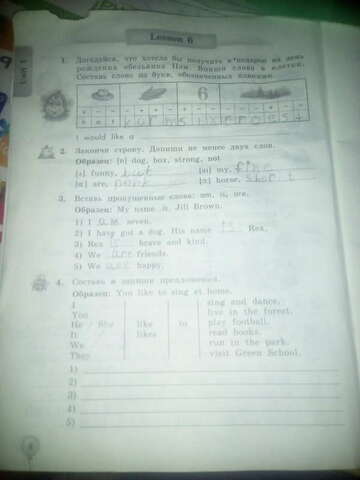 Unit 1
Lesson 6
1. Догадайся, что хотела бы получить в подарок на день
рождения обезьянка Пэм. Впиши слова в клетки.
Составь слово из букв, обозначенных плюсами.
6
I would like a
2. Закончи строку. Допиши не менее двух слов.
Образец: [ɒ] dog, box, strong, not
[ʌ] funny, but [aɪ] my, fine
[ɑ:] are, park [ɔ:] horse, short
3. Вставь пропущенные слова: am, is, are.
Образец: My name is Jill Brown.
1) I am seven.
2) I have got a dog. His name is Rex.
3) Rex is brave and kind.
4) We are friends.
5) We are happy.
4. Составь и запиши предложения.
Образец: You like to sing at home.
I sing and dance.
You live in the forest.
He / She like to play football.
It likes read books.
We run in the park.
They visit Green School.
1)
2)
3)
4)
5)